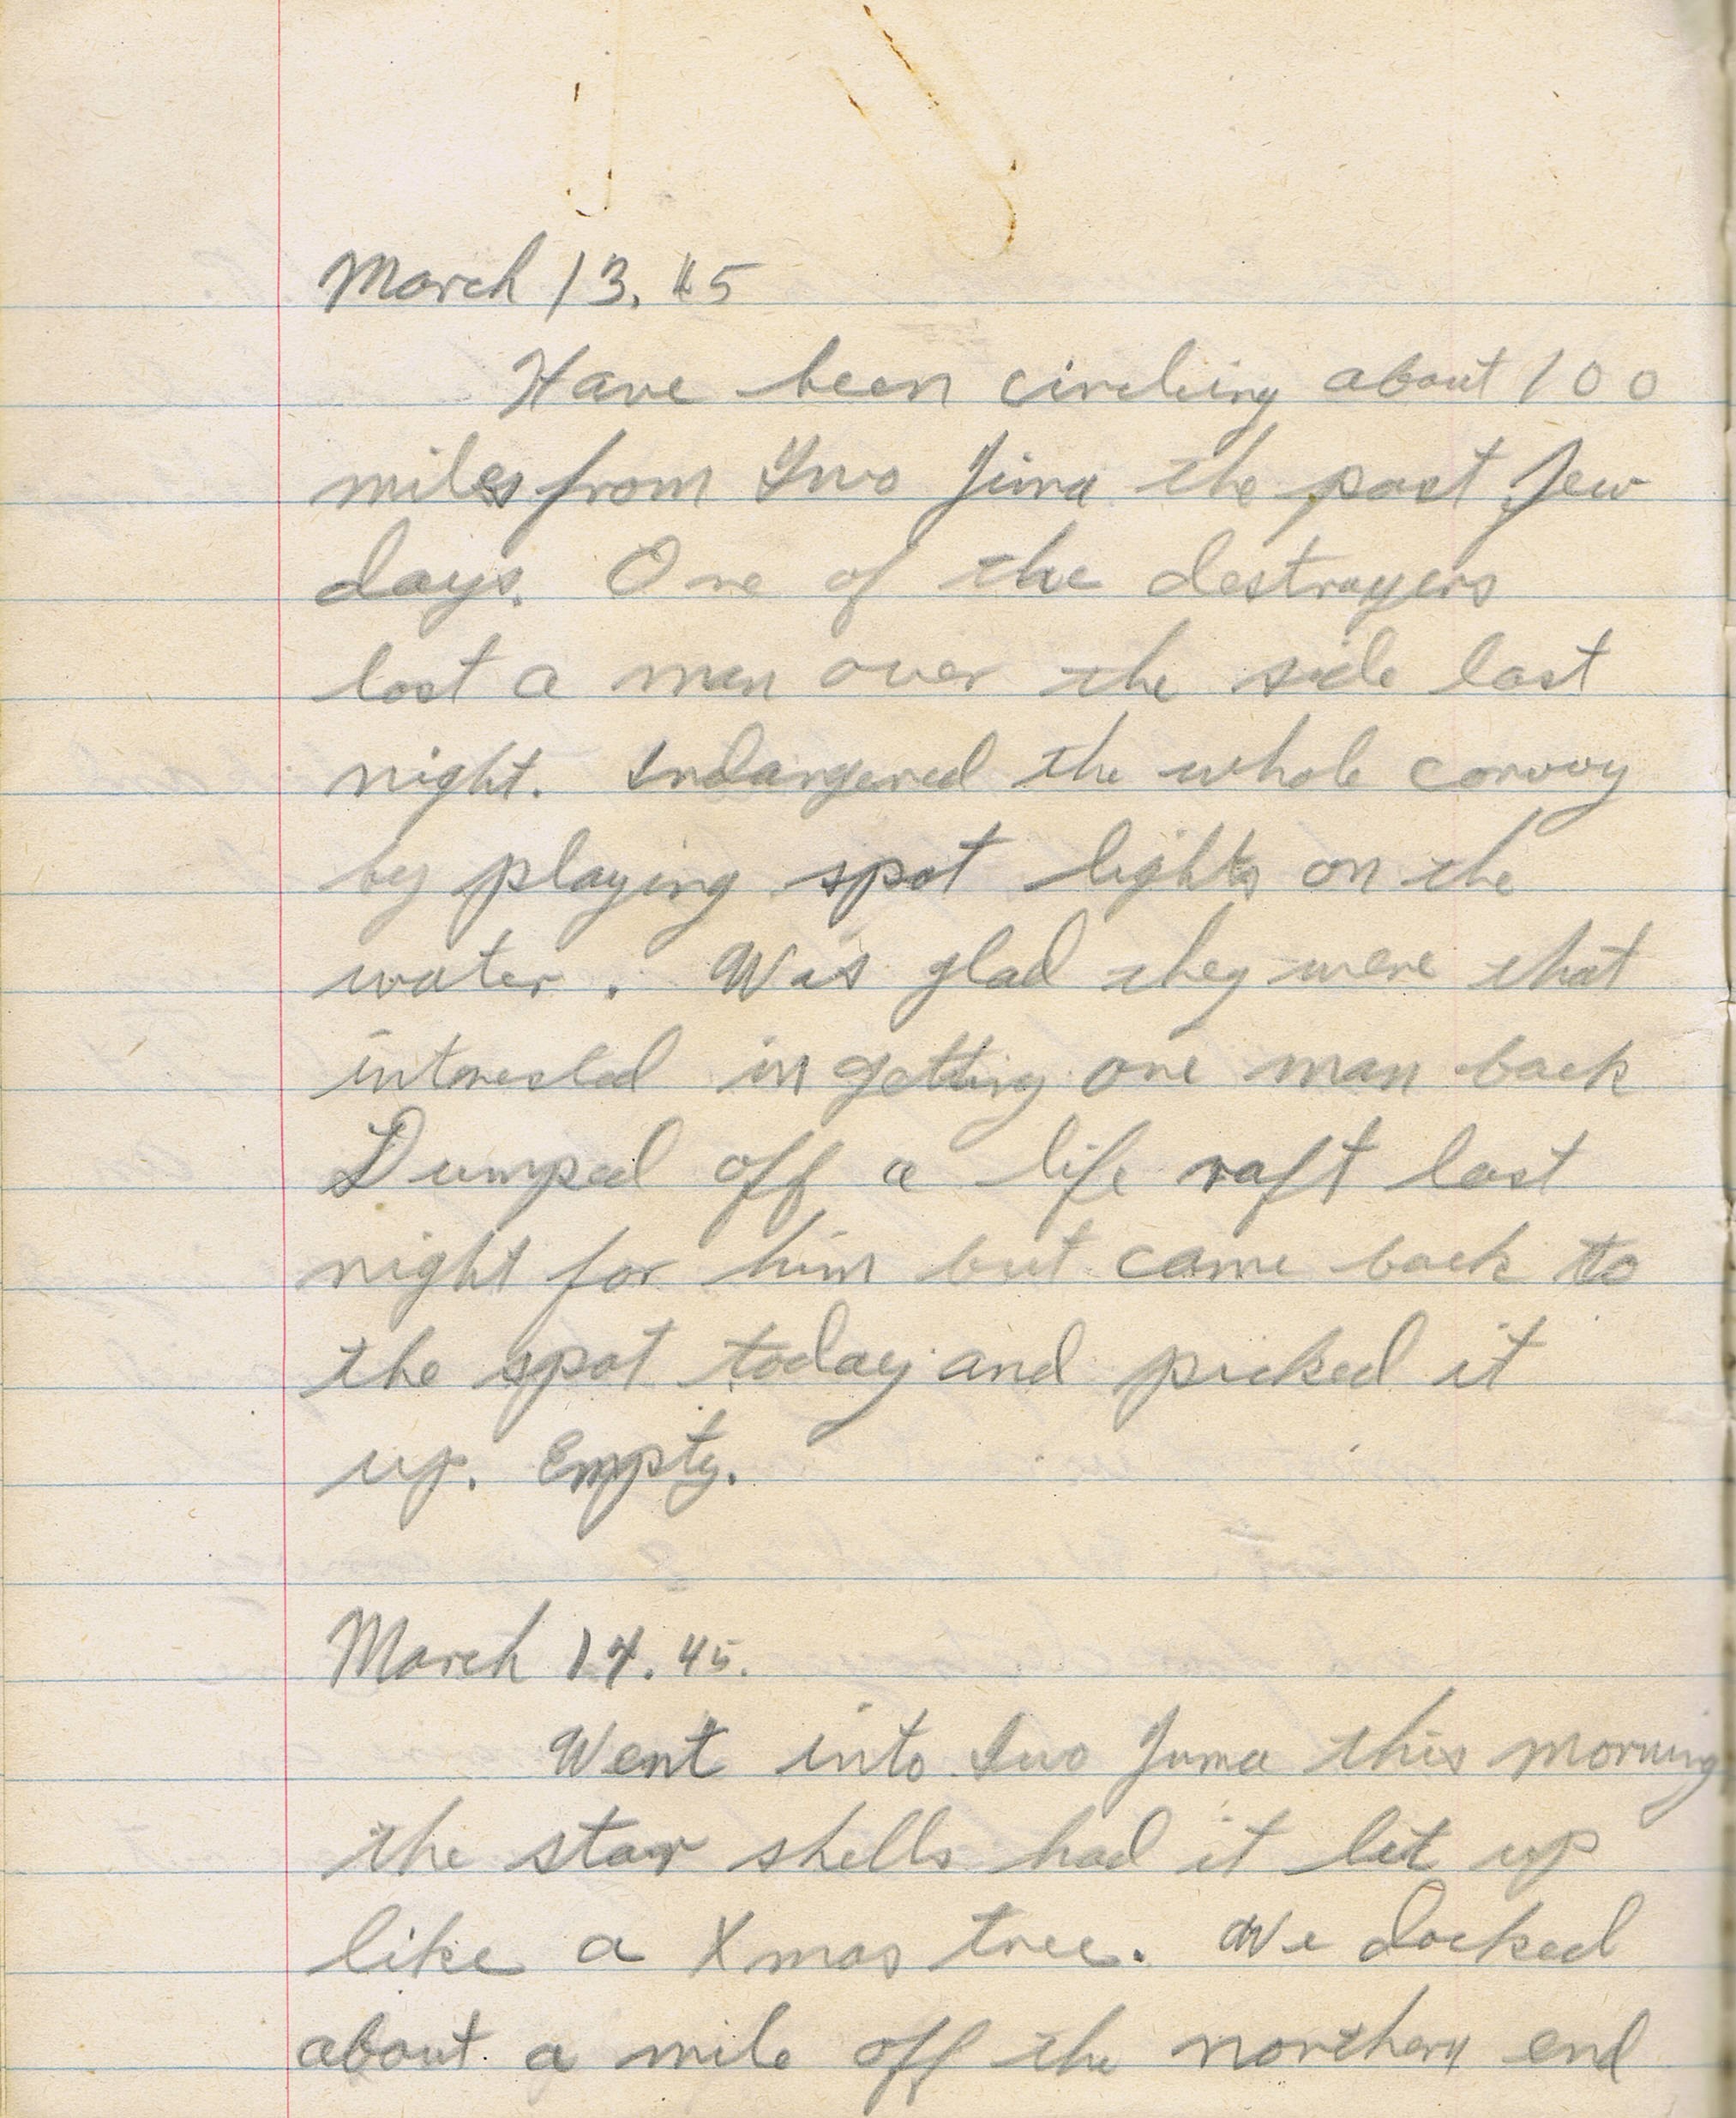 March 13. 45
Have been circling about 100
miles from Iwo Jima the past few
days. One of the destroyers
lost a man over the side last
night. Indangered the whole convoy
by playing spot lights on the
water. Was glad they were that
interested in getting one man back
Dumped off a life raft last
night for him but came back to
the spot today and picked it
up. Empty.
March 14. 45.
Went into Iwo Juma this morning
the star shells had it lit up
like a Xmas tree. We docked
about a mile off the northern end